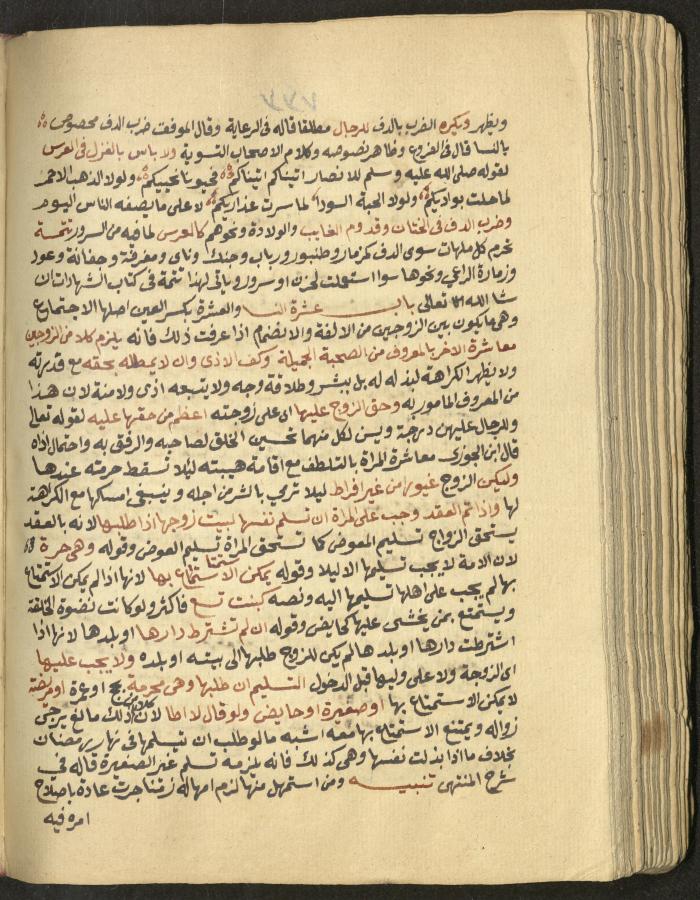 ويظهر ويكره الضرب بالدف للرجال مطلقا قاله في الرعاية وقال الموفق ضرب الدف مخصوص
بالنسا قال في الفروع وظاهر نصوصه وكلام الاصحاب التسوية ولا باس بالغزل في العرس
لقوله صلى الله عليه وسلم للانصار اتيناكم اتيناكم فحيونا نحييكم ولولا الذهب الاحمر
لما حلت بواديكم ولولا الحبة السودا لما سرت عذاريكم لا على ما يصنعه الناس اليوم
وضرب الدف في الختان وقدوم الغايب والولادة ونحوهم كالعرس لما فيه من السرور تتمة
تحرم كل ملهات سوى الدف كمزمار وطنبور ورباب وجنك وناي ومعزفة وجفانة وعود
وزمارة الراعي ونحوها سوا استعملت لحزن او سرور وياتي لهذا تتمة في كتاب الشهادات ان
شا الله تعالى باب عشرة النسا والعشرة بكسر العين اصلها الاجتماع
وهي ما يكون بين الزوجين من الالفة والانضمام اذا عرفت ذلك فانه يلزم كلا من الزوجين
معاشرة الاخر بالمعروف من الصحبة الجميلة وكف الاذى وان لا يمطله بحقه مع قدرته
ولا يظهر الكراهة لبذله له بل ببشر وطلاقة وجه ولا يتبعه اذى ولا منة لان هذا
من المعروف المامور به وحق الزوج عليها اي على زوجته اعظم من حقها عليه لقوله تعالى
وللرجال عليهن درجة ويسن لكل منهما تحسين الخلق لصاحبه والرفق به واحتمال اذاه
قال ابن الجوزي معاشرة المراة بالتلطف مع اقامة هيبته لئلا تسقط حرمته عندها
وليكن الزوج غيورا من غير افراط ليلا ترمي بالشر من اجله وينبغي امساكها مع الكراهة
لها واذا تم العقد وجب على المراة ان تسلم نفسها لبيت زوجها اذا طلبها لانه بالعقد
يستحق الزواج تسليم المعوض كما تستحق المراة تسليم العوض وقوله وهي حرة
لان الامة لا يجب تسليمها الا ليلا وقوله يمكن الاستمتاع بها لانها اذا لم يمكن الاستمتاع
بها لم يجب على اهلها تسليمها اليه ونصه كبنت تسع فاكثر ولو كانت نضوة الخلقة
ويستمتع بمن يخشى عليها كحايض وقوله ان لم تشترط دارها او بلدها لانها اذا
اشترطت دارها او بلدها لم يكن للزوج طلبها الى بيته او بلده ولا يجب عليها
اي الزوجة ولا على وليها قبل الدخول التسليم ان طلبها وهي محرمة بحج او عمرة او مريضة
لا يمكن الاستمتاع بها او صغيرة او حايض ولو قال لا اطا لان كلا من ذلك مانع يرجى
زواله ويمتنع الاستمتاع بها معه اشبه ما لو طلب ان تسلمها في نهار رمضان
بخلاف ما اذا بذلت نفسها وهي كذلك فانه يلزمه تسلم غير الصغيرة قاله في
شرح المنتهى تنبيه ومن استمهل منهما لزم امهاله زمنا جرت عادة باصلاح
امره فيه